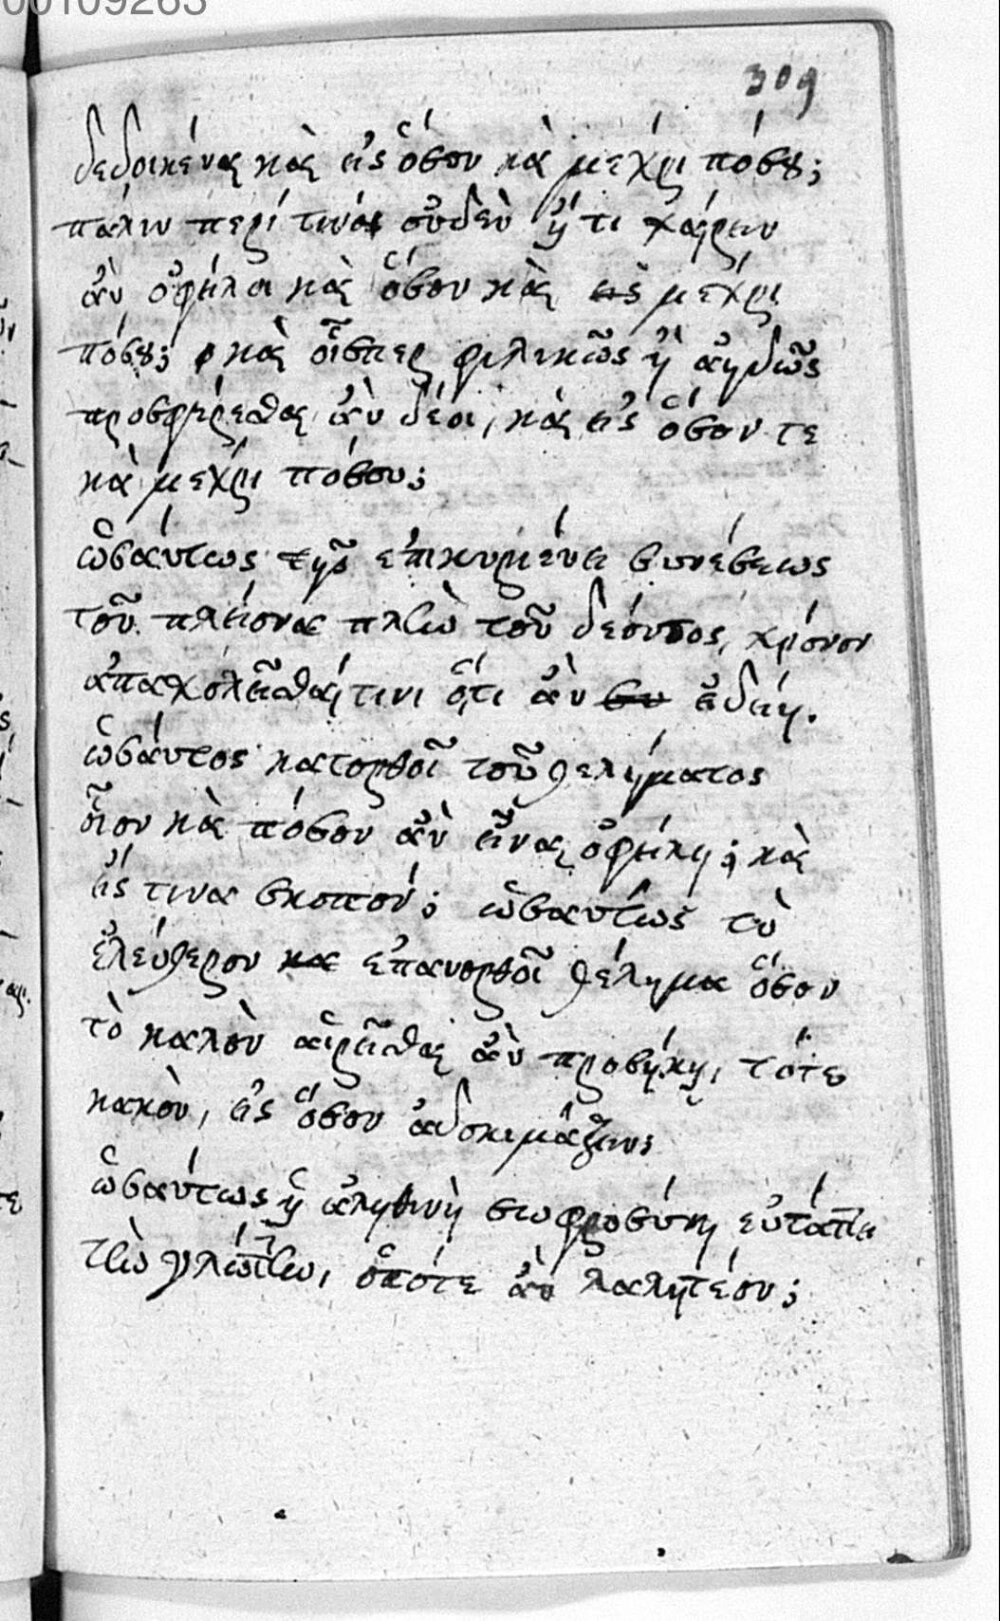 00109263
309
δεδοικέναι καὶ εἰς ὅσον καὶ μεχρι πόσου;
πάλιν περί τινός οὐδὲν ἢ τι χαίρειν
ἂν ὀφείλοι καὶ ὅσον καὶ εἰς μέχρι
πόσου; καὶ οἷσπερ φιλικῶς ἢ ἀηδῶς
προσφέρεσθαι ἂν δέοι, καὶ εἰς ὅσον τε
καὶ μεχρι πόσου;
ὡσαύτως τῆς συνέσεως
τοῦ πλείονα πλὴν τοῦ δέοντος, χρόνον
ἀπασχολεῖσθαί τινι ὅτι ἂν ἐδέῃ.
ὡσάυτος κατορθοῖ τοῦ θελήματος
οἷον καὶ πόσον ἂν εἶναι ὀφείλῃ; καὶ
εἰς τινα σκοπον; ὡσαυτως τὸ
ἐλεύθερον και ἐπανορθοῖ θέλημα ὅσον
τὸ καλὸν αἱρεῖσθαι ἂν προσήκῃ, τότε
κακὸν, εἰς ὅσον
ὡσαύτως ἡ ἀληθινὴ σωφροσύνη εὐτάττει
τὴν γλώττην, ὁπότε ἂν λαλητέον;